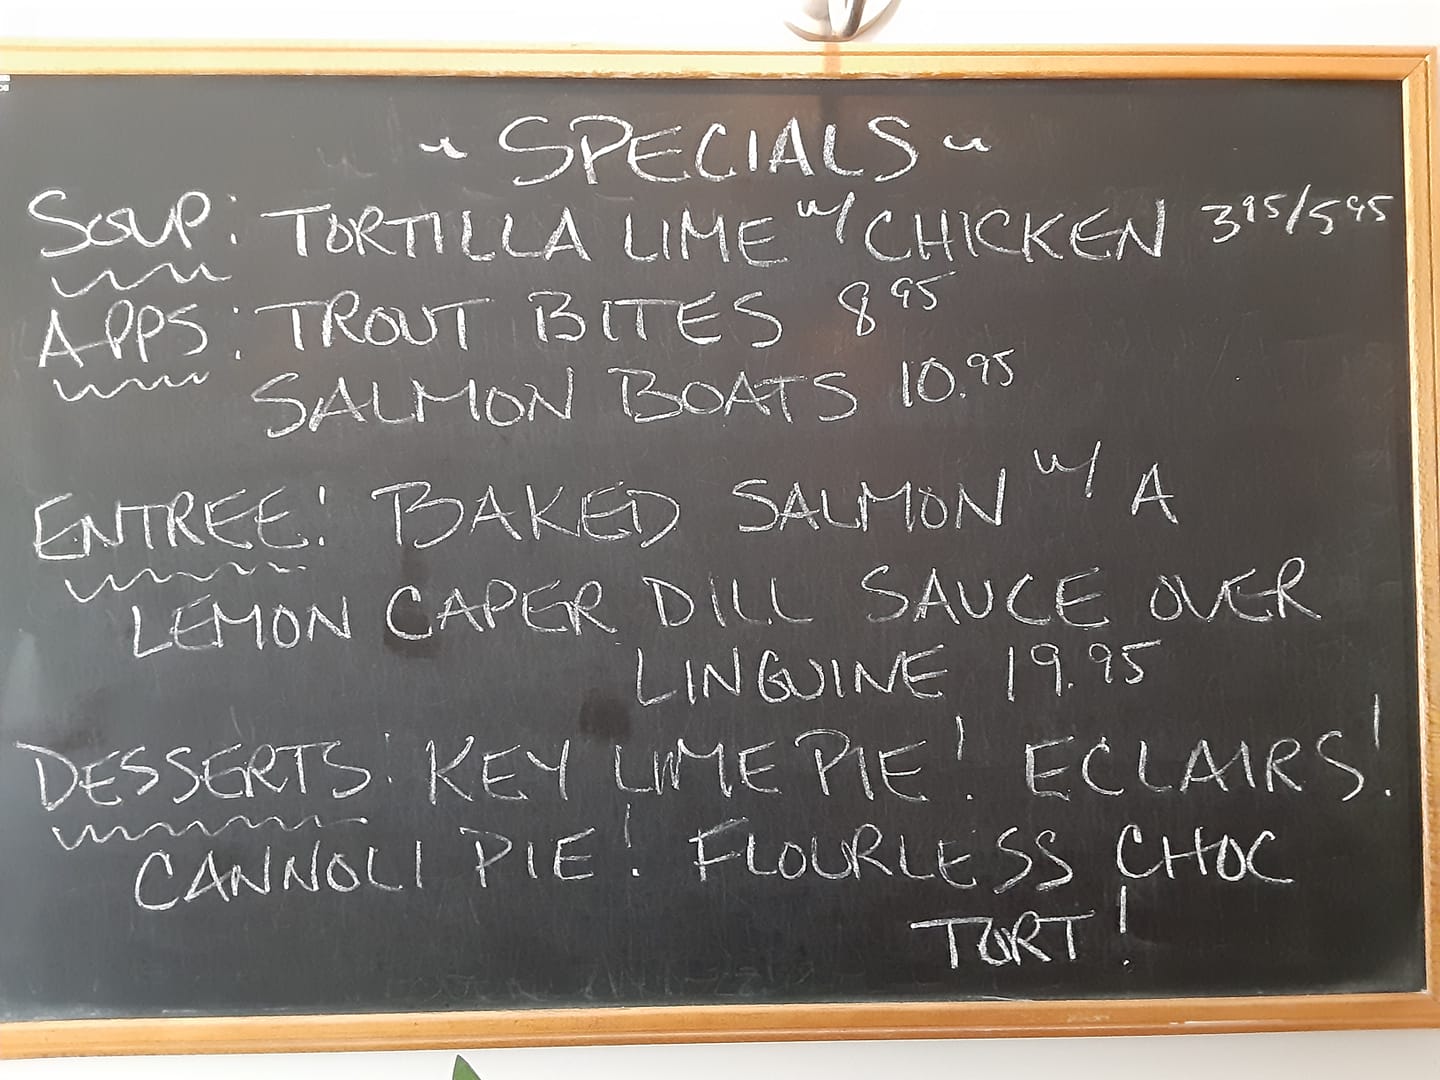 ~ SPECIALS ~
SOUP: TORTILLA LIME w/ CHICKEN 3 95/5 95
APPS: TROUT BITES 8 95
SALMON BOATS 10.95
ENTREE: BAKED SALMON w/ A
LEMON CAPER DILL SAUCE OVER
LINGUINE 19.95
DESSERTS: KEY LIME PIE! ECLAIRS!
CANNOLI PIE! FLOURLESS CHOC
TORT!